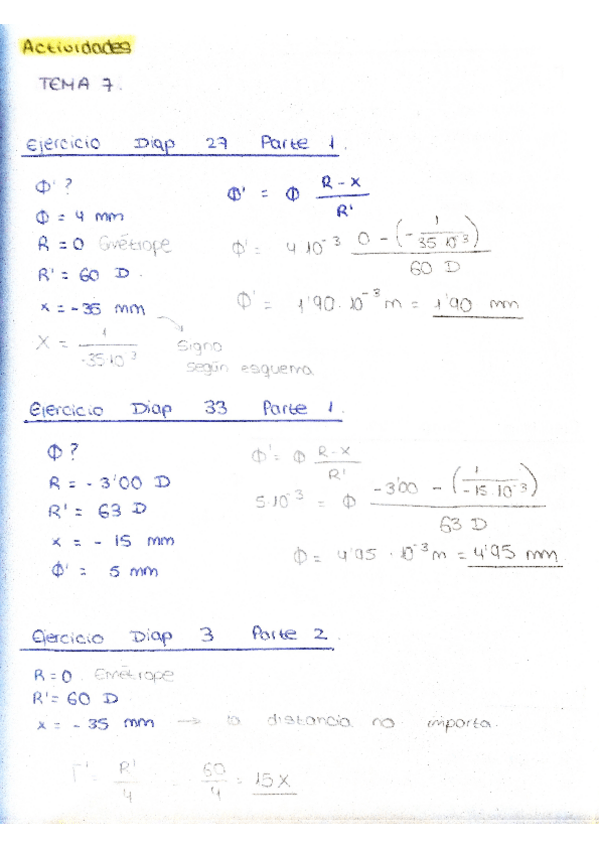 Actividades
TEMA 7.
Ejercicio Diap 27 Parte 1.
Φ' ?
Φ = 4 mm
R = 0 Emétrope
R' = 60 D.
x = -35 mm
X = 1 / -35·10⁻³
Signo
según esquema
Φ' = Φ (R - X) / R'
Φ' = 4·10⁻³ (0 - (- 1 / 35·10⁻³)) / 60 D
Φ' = 1'90·10⁻³ m = 1'90 mm
Ejercicio Diap 33 Parte 1.
Φ ?
R = - 3'00 D
R' = 63 D
x = - 15 mm
Φ' = 5 mm
Φ' = Φ (R - X) / R'
5·10⁻³ = Φ (-3'00 - (1 / -15·10⁻³)) / 63 D
Φ = 4'95·10⁻³ m = 4'95 mm.
Ejercicio Diap 3 Parte 2.
R = 0. Emétrope
R' = 60 D
x = - 35 mm → la distancia no importa.
Γ' = R' / 4 = 60 / 4 = 15 X